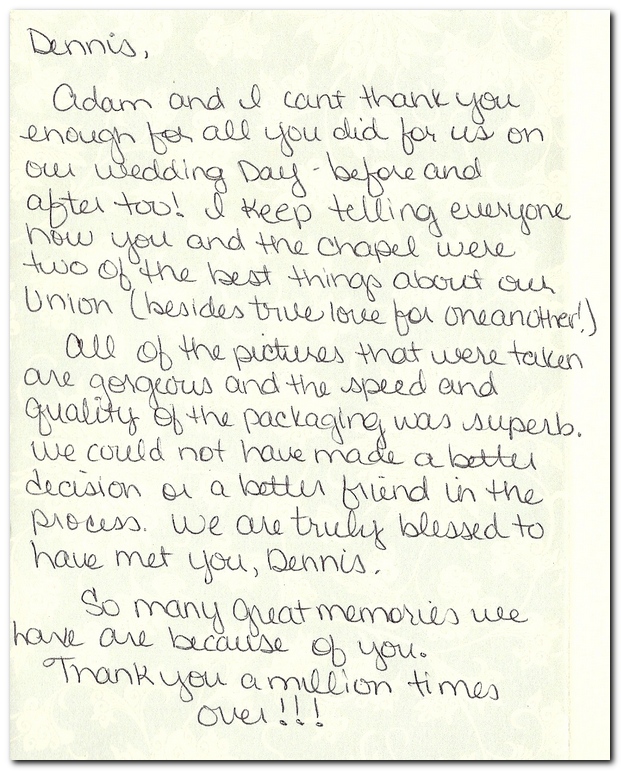 Dennis,
Adam and I cant thank you
enough for all you did for us on
our wedding Day - before and
after too! I keep telling everyone
how you and the chapel were
two of the best things about our
Union (besides true love for oneanother!)
All of the pictures that were taken
are gorgeous and the speed and
quality of the packaging was superb.
We could not have made a better
decision or a better friend in the
process. We are truly blessed to
have met you, Dennis.
So many great memories we
have are because of you.
Thank you a million times
over!!!